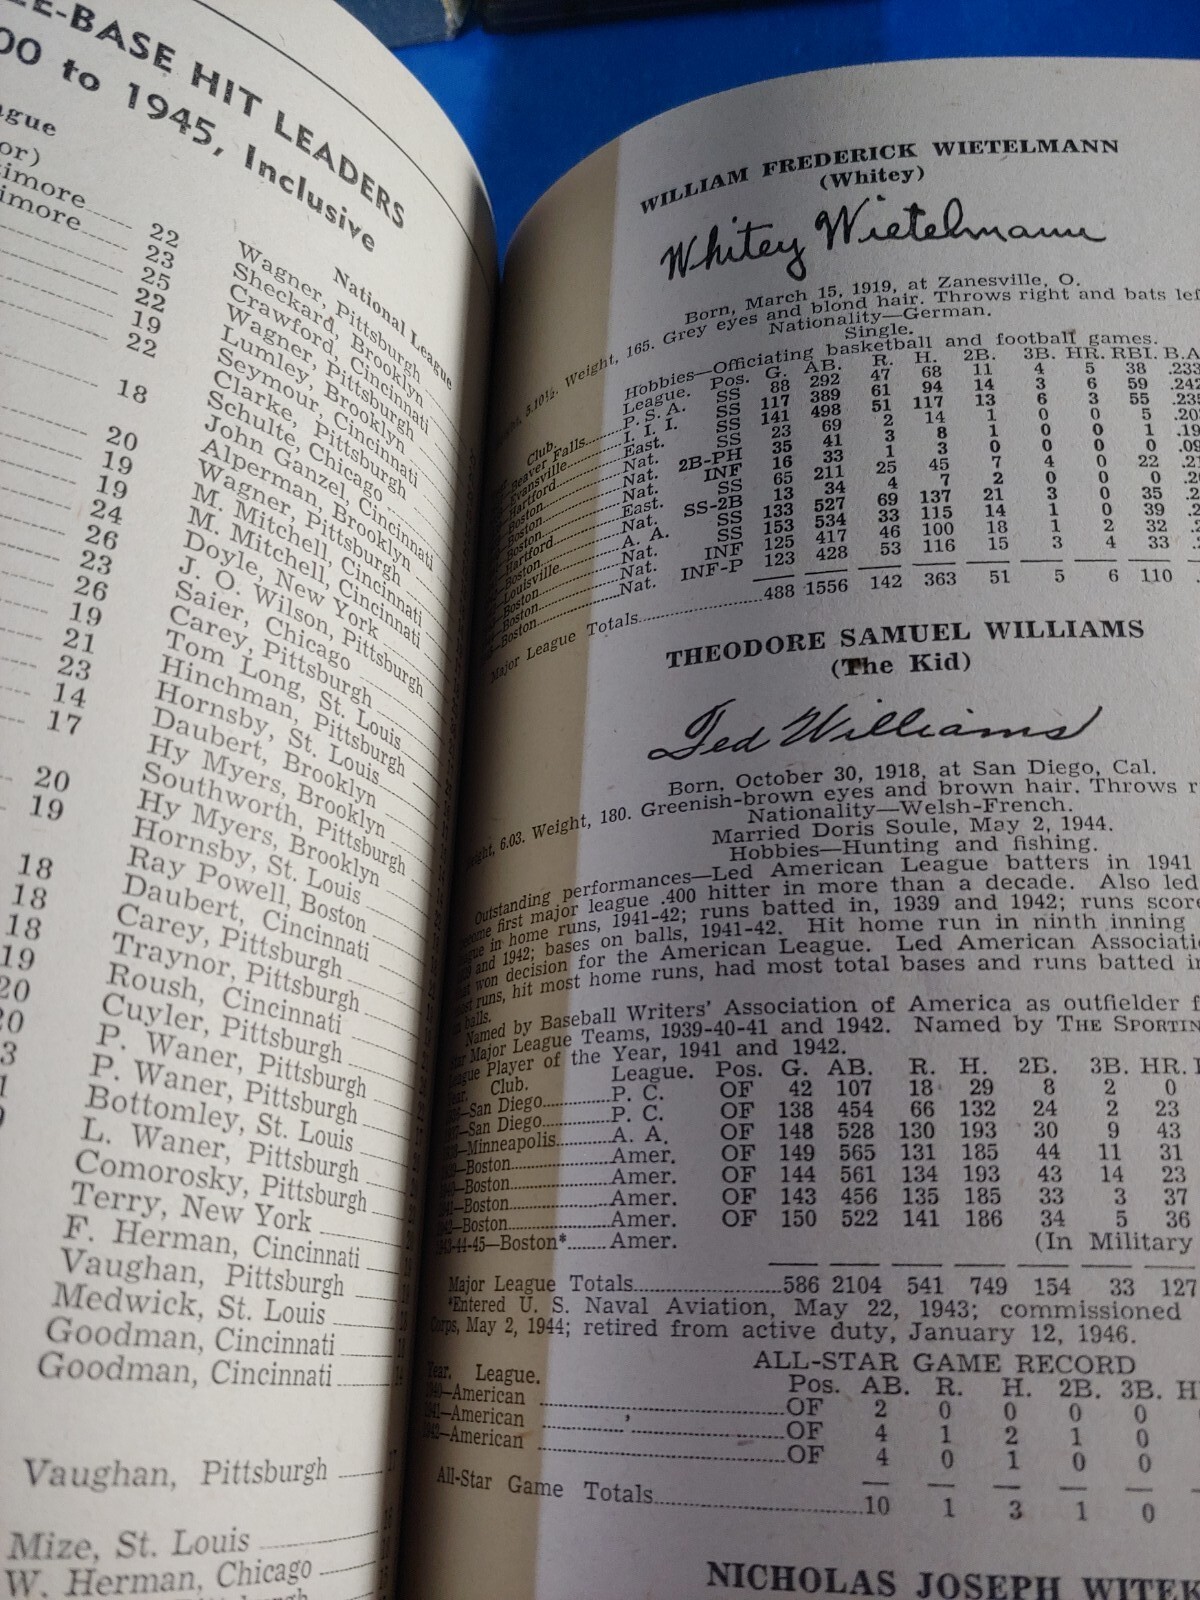 EE-BASE HIT LEADERS
00 to 1945, Inclusive
ague
or)
timore
imore
22
23
25
22
19
22
18
20
19
19
24
26
23
26
19
21
23
14
17
20
19
18
18
18
19
20
20
National League
Wagner, Pittsburgh
Sheckard, Brooklyn
Crawford, Cincinnati
Wagner, Pittsburgh
Lumley, Brooklyn
Seymour, Cincinnati
Clarke, Pittsburgh
Schulte, Chicago
John Ganzel, Cincinnati
Alperman, Brooklyn
Wagner, Pittsburgh
M. Mitchell, Cincinnati
M. Mitchell, Cincinnati
Doyle, New York
J. O. Wilson, Pittsburgh
Saier, Chicago
Carey, Pittsburgh
Tom Long, St. Louis
Hinchman, Pittsburgh
Hornsby, St. Louis
Daubert, Brooklyn
Hy Myers, Brooklyn
Southworth, Pittsburgh
Hy Myers, Brooklyn
Hornsby, St. Louis
Ray Powell, Boston
Daubert, Cincinnati
Carey, Pittsburgh
Traynor, Pittsburgh
Roush, Cincinnati
Cuyler, Pittsburgh
P. Waner, Pittsburgh
P. Waner, Pittsburgh
Bottomley, St. Louis
L. Waner, Pittsburgh
Comorosky, Pittsburgh
Terry, New York
F. Herman, Cincinnati
Vaughan, Pittsburgh
Medwick, St. Louis
Goodman, Cincinnati
Goodman, Cincinnati
Vaughan, Pittsburgh
Mize, St. Louis
W. Herman, Chicago
WILLIAM FREDERICK WIETELMANN
(Whitey)
Whitey Wietelmann
Born, March 15, 1919, at Zanesville, O.
5.10½. Weight, 165. Grey eyes and blond hair. Throws right and bats lef
Nationality—German.
Single.
Hobbies—Officiating basketball and football games.
Club. League. Pos. G. AB. R. H. 2B. 3B. HR. RBI. B.A
Beaver Falls P. S. A. SS 88 292 47 68 11 4 5 38 .233
Evansville I. I. I. SS 117 389 61 94 14 3 6 59 .242
Hartford East. SS 141 498 51 117 13 6 3 55 .235
Boston Nat. SS 23 69 2 14 1 0 0 5 .20
Boston Nat. 2B-PH 35 41 3 8 1 0 0 1 .19
Boston Nat. INF 16 33 1 3 0 0 0 0 .09
Hartford East. SS 65 211 25 45 7 4 0 22 .21
Boston Nat. SS-2B 13 34 4 7 2 0 0 0 .2
Louisville A. A. SS 133 527 69 137 21 3 0 35 .2
Boston Nat. SS 153 534 33 115 14 1 0 39 .2
Boston Nat. INF 125 417 46 100 18 1 2 32 .2
Boston Nat. INF-P 123 428 53 116 15 3 4 33 .
Major League Totals 488 1556 142 363 51 5 6 110
THEODORE SAMUEL WILLIAMS
(The Kid)
Ted Williams
Born, October 30, 1918, at San Diego, Cal.
ight, 6.03. Weight, 180. Greenish-brown eyes and brown hair. Throws r
Nationality—Welsh-French.
Married Doris Soule, May 2, 1944.
Hobbies—Hunting and fishing.
Outstanding performances—Led American League batters in 1941
come first major league .400 hitter in more than a decade. Also led
ague in home runs, 1941-42; runs batted in, 1939 and 1942; runs score
and 1942; bases on balls, 1941-42. Hit home run in ninth inning
at won decision for the American League. Led American Associati
runs, hit most home runs, had most total bases and runs batted in
balls.
Named by Baseball Writers' Association of America as outfielder f
Star Major League Teams, 1939-40-41 and 1942. Named by THE SPORTIN
League Player of the Year, 1941 and 1942.
Year. Club. League. Pos. G. AB. R. H. 2B. 3B. HR.
San Diego P. C. OF 42 107 18 29 8 2 0
San Diego P. C. OF 138 454 66 132 24 2 23
Minneapolis A. A. OF 148 528 130 193 30 9 43
Boston Amer. OF 149 565 131 185 44 11 31
Boston Amer. OF 144 561 134 193 43 14 23
Boston Amer. OF 143 456 135 185 33 3 37
Boston Amer. OF 150 522 141 186 34 5 36
1943-44-45—Boston* Amer. (In Military
Major League Totals 586 2104 541 749 154 33 127
*Entered U. S. Naval Aviation, May 22, 1943; commissioned
Corps, May 2, 1944; retired from active duty, January 12, 1946.
ALL-STAR GAME RECORD
Year. League. Pos. AB. R. H. 2B. 3B. H
1940—American OF 2 0 0 0 0
1941—American OF 4 1 2 1 0
1942—American OF 4 0 1 0 0
All-Star Game Totals 10 1 3 1 0
NICHOLAS JOSEPH WITEK